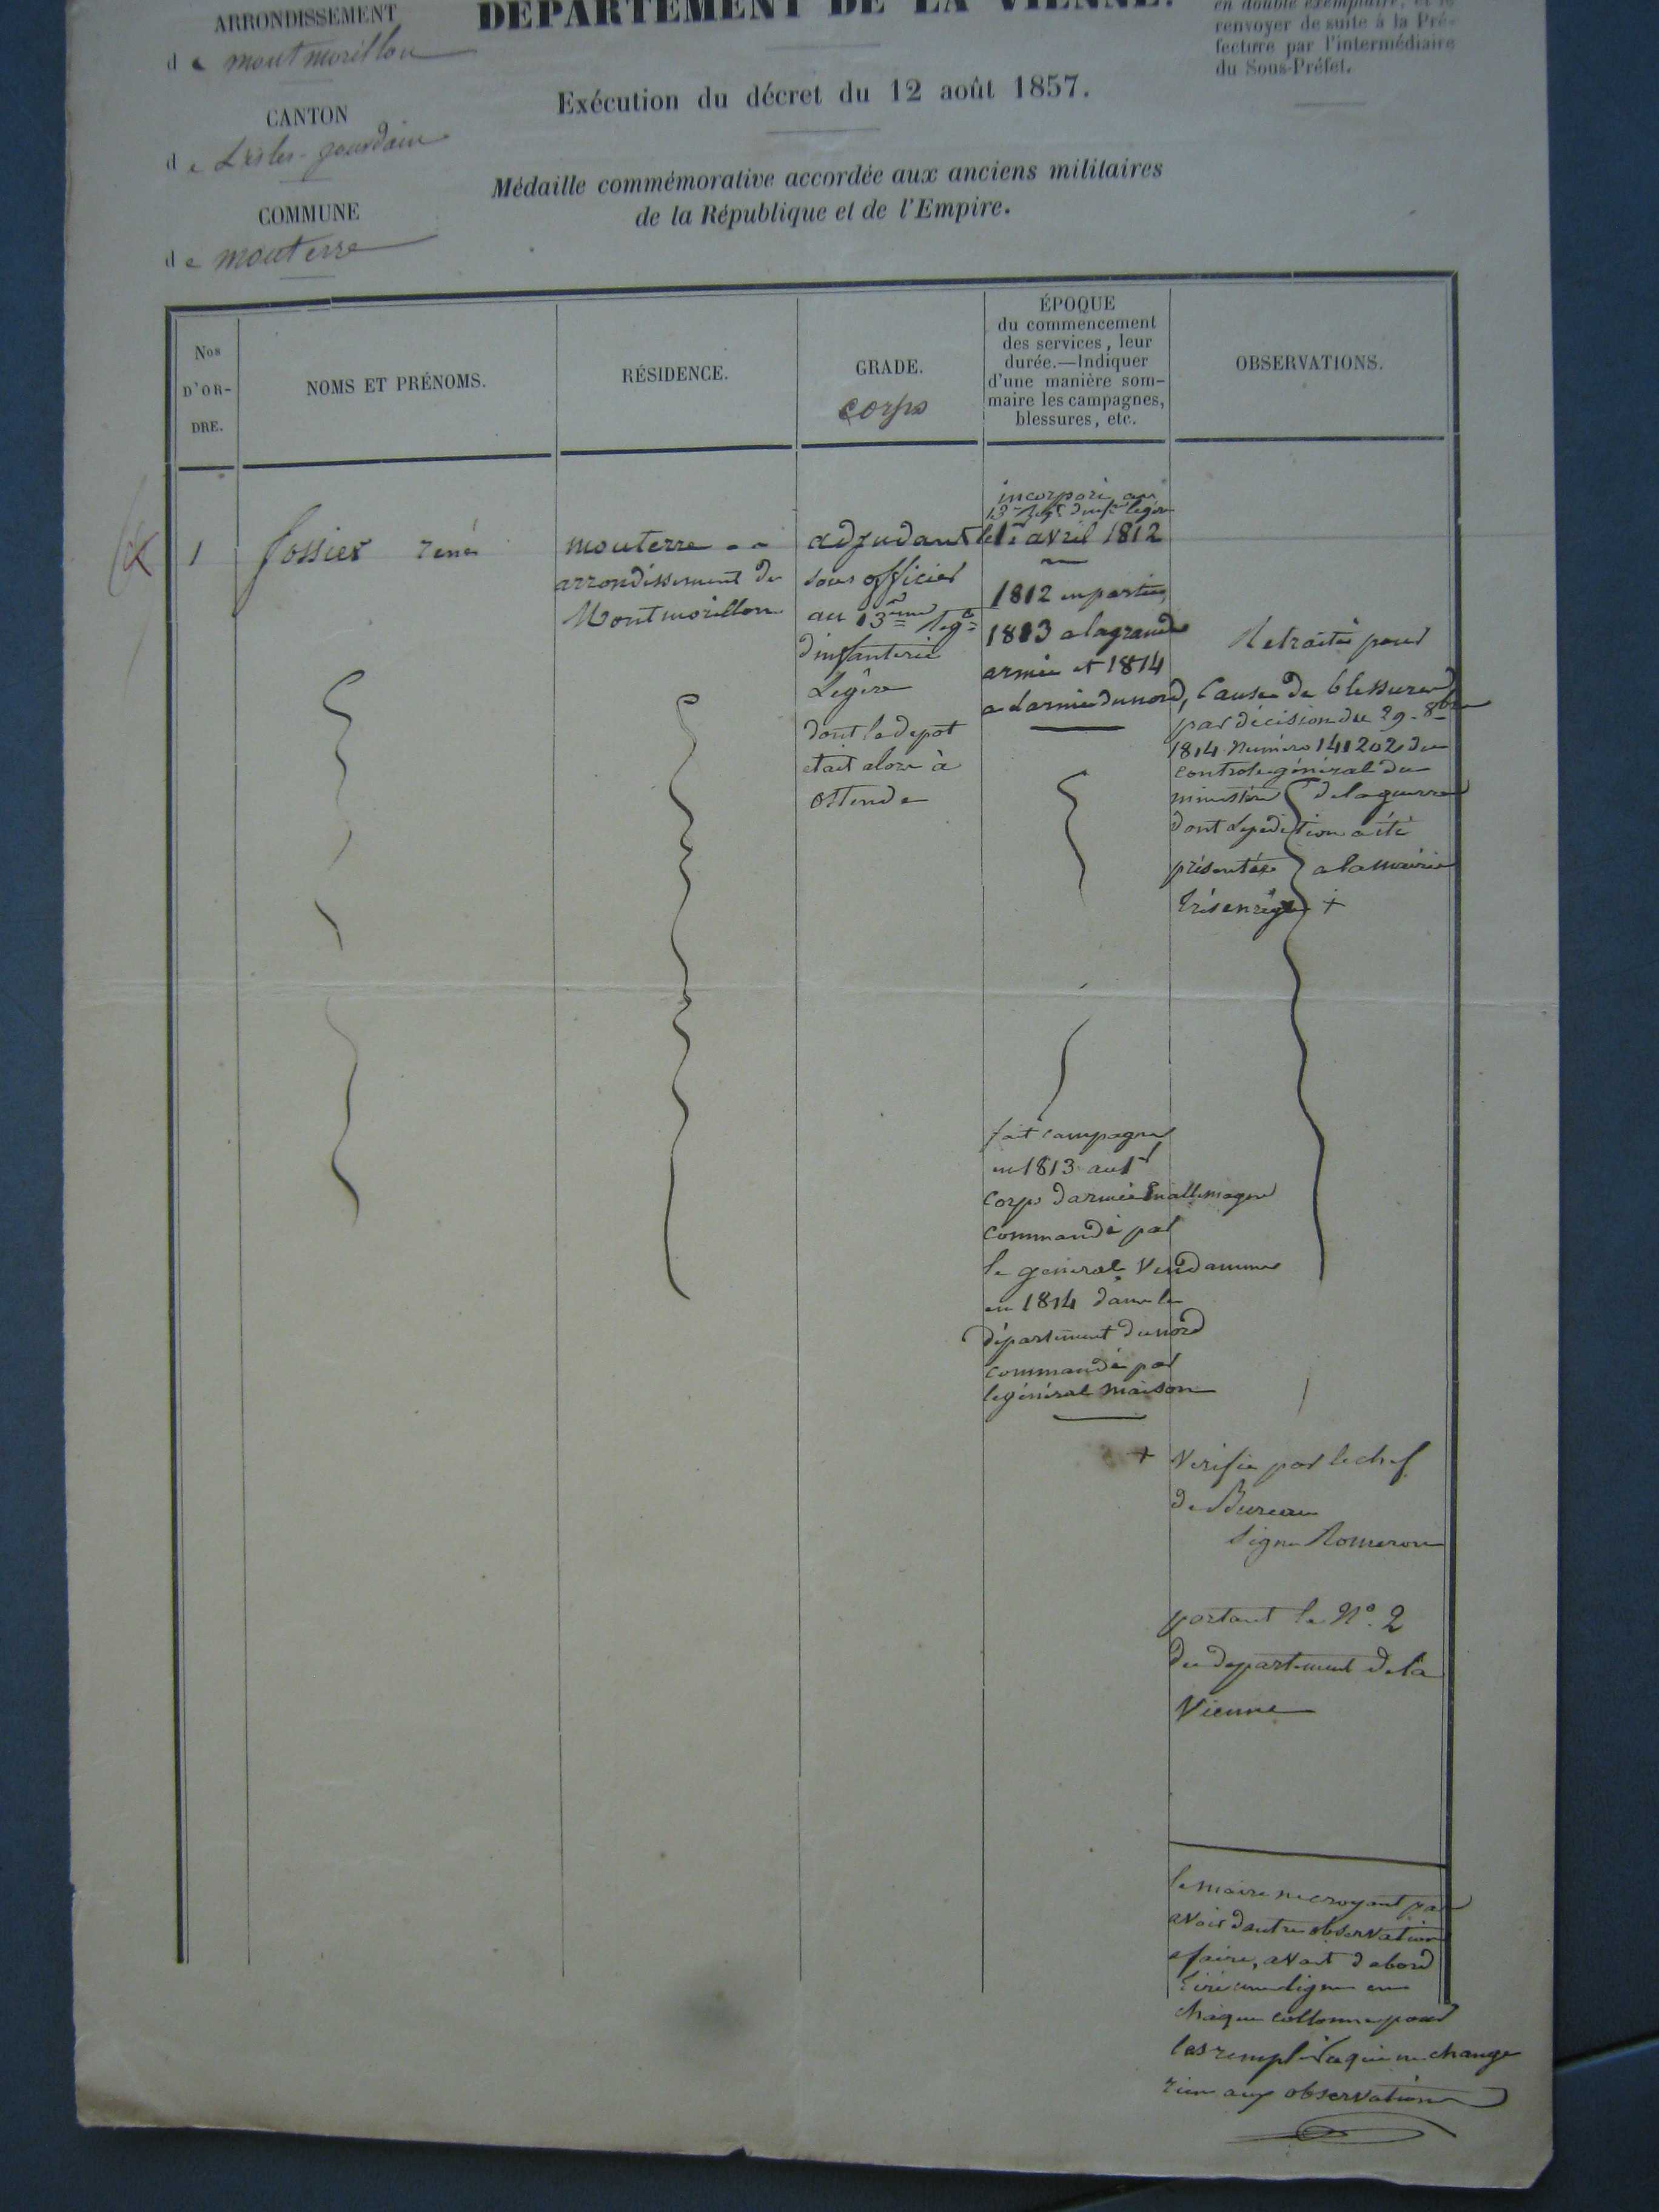 ARRONDISSEMENT
de montmorillon
CANTON
de L'isles-jourdain
COMMUNE
de mouterre
DÉPARTEMENT DE LA VIENNE.
Exécution du décret du 12 août 1857.
Médaille commémorative accordée aux anciens militaires
de la République et de l'Empire.
en double exemplaire, et le
renvoyer de suite à la Pré-
fecture par l'intermédiaire
du Sous-Préfet.
Nos
D'OR-
DRE.
NOMS ET PRÉNOMS.
RÉSIDENCE.
GRADE.
corps
ÉPOQUE
du commencement
des services, leur
durée.—Indiquer
d'une manière som-
maire les campagnes,
blessures, etc.
OBSERVATIONS.
1
fossier rené
mouterre
arrondissement de
Montmorillon
adjudant
sous officier
au 13eme regt
d'infanterie
Legère
dont le depot
etait alors à
Ostende
incorporé au
13e regt d'infie legère
le 1er avril 1812
1812 en partie,
1813 a la grande
armée et 1814
a L'armée du nord,
fait campagne
en 1813 au 1r
Corps d'armée En allemagne
Commandé par
le general Vendamme
en 1814 dans le
département du nord
commandé par
le général maison
Retraité pour
Cause de blessures
par décision du 29 8bre
1814 Numéro 141202 du
controle général du
ministère de la guerre
dont Lepedition a été
présentée a la mairie
+
+ Verifie par le chef
de Bureau
signe
portant le N° 2
du departement de la
Vienne
le maire ne croyant pas
avoir d'autre observation
a faire, avait d'abord
tiré une ligne en
chaque collonne pour
les remplir ce qui ne change
rien aux observations